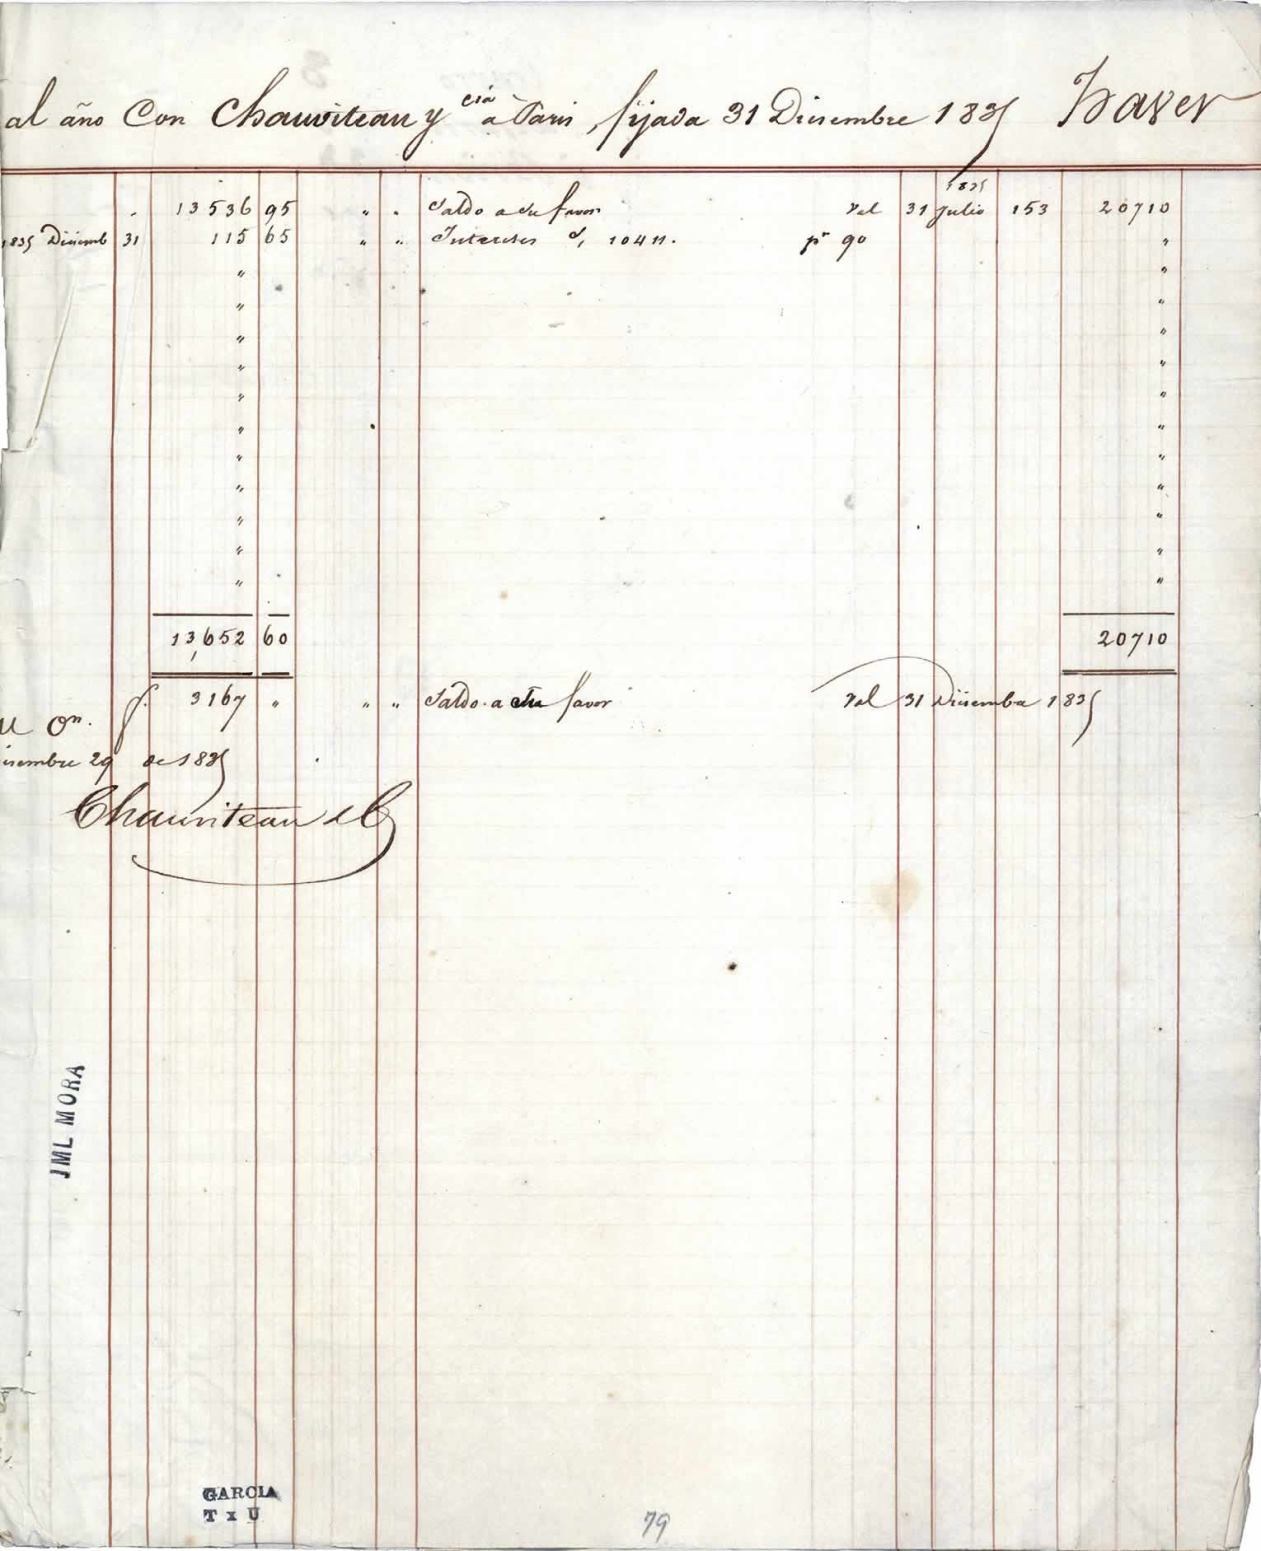 al año Con Chauviteau y cia a Paris, fijada 31 Diciembre 1835 Haver
1835
" 13536 95 " " Saldo a su favor Val 31 Julio 153 20710
1835 Diciemb 31 115 65 " " Intereses s/ 10411. pr 90 "
" "
" "
" "
" "
" "
" "
" "
" "
" "
" "
" "
13,652 60 20710
f. 3167 " " " Saldo a su favor Val 31 Diciembre 1835
u On.
iciembre 29 de 1835
Chauviteau & Co
JML MORA
GARCIA
T x U
79